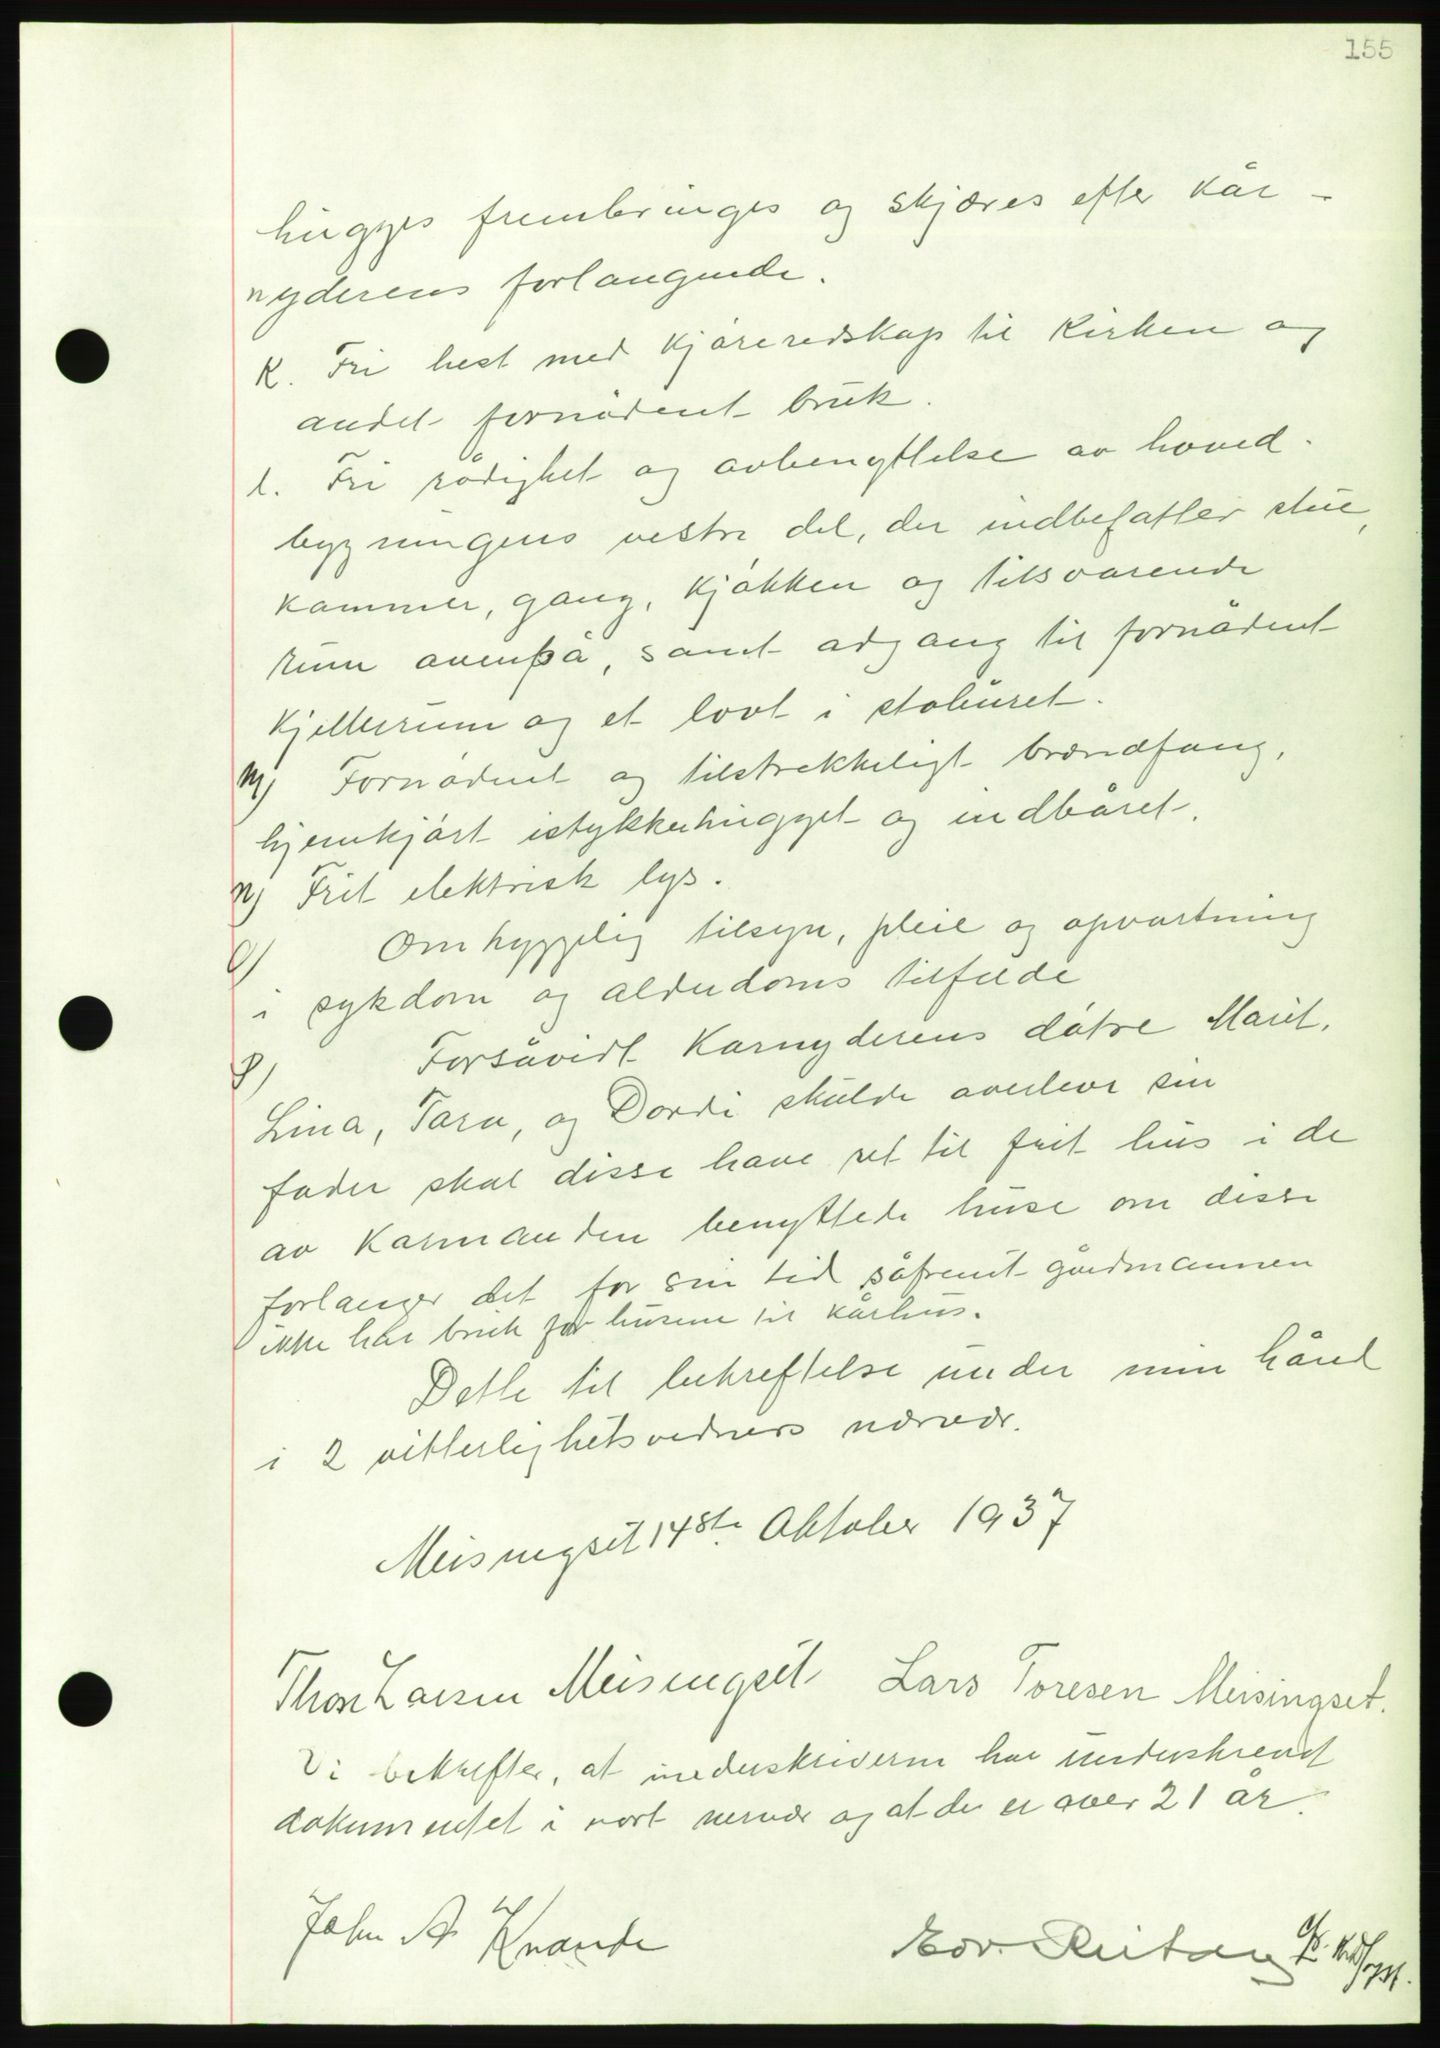 155
hugges frembringes og skjæres efter kår-
nyderens forlangende.
K. Fri hest med kjøreredskap til Kirken og
andet fornødent bruk.
l. Fri rådighet og avbenyttelse av hoved-
bygningens vestre del, der indbefatter stue,
kammer, gang, kjøkken og tilsvarende
rum ovenpå, samt adgang til fornødent
kjellerrum og et lovt i staburet.
m) Fornødent og tilstrekkeligt brændfang,
hjemkjørt istykkerhugget og indbåret.
n) Frit elektrisk lys.
o) Omhyggelig tilsyn, pleie og opvartning
i sykdom og alderdoms tilfelde
p) Forsåvidt Karnyderens døtre Marit,
Lina, Tara, og Dordi skulde overleve sin
fader skal disse have ret til frit hus i de
av Karmanden benyttede huse om disse
forlanger det for sin tid såfremt gårdmannen
ikke har bruk for husene til kårhus.
Dette til bekreftelse under min hånd
i 2 vitterlighetsvidners nærvær.
Meisingset 14de Oktober 1937
Thore Larsen Meisingset Lars Toresen Meisingset.
Vi bekrefter, at underskriverne har underskrevet
dokumentet i vort nervær og at de er over 21 år.
John A Kvande
Edv. Reitan